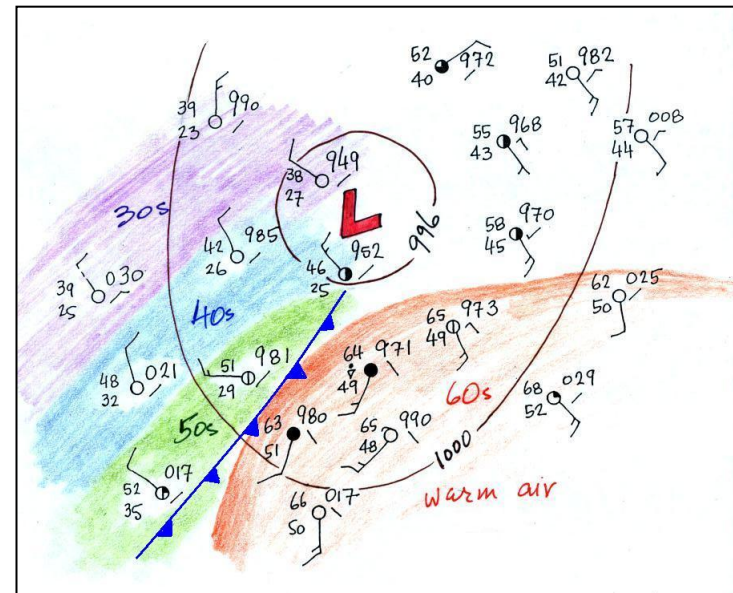 52 972
40
51 982
42
39 990
23
55 968
43
57 008
44
38 949
27
30s
L
996
42 985
26
58 970
45
46 952
25
39 030
25
62 025
50
40s
65 973
49
51 981
29
64 971
49
48 021
32
60s
68 029
52
50s
63 980
51
65 990
48
1000
52 017
35
66 017
50
warm air